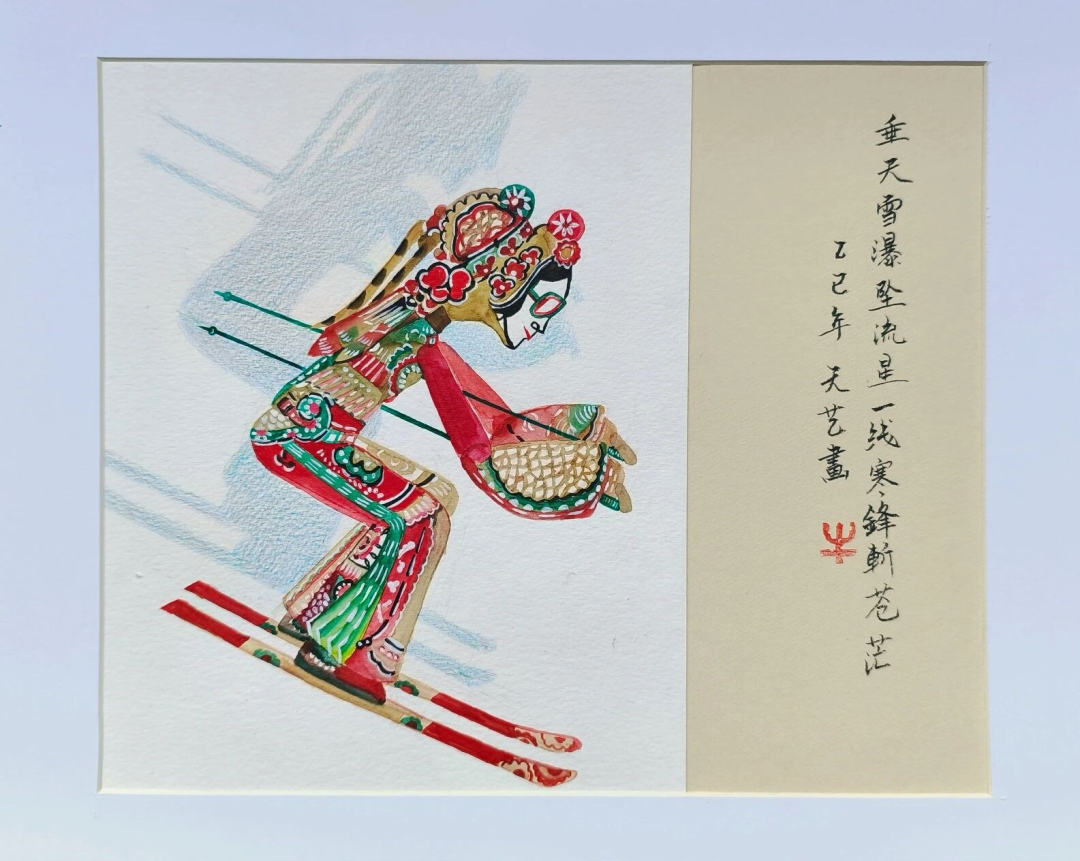 垂天雪瀑坠流星一线寒鋒斬苍茫
乙巳年 天艺畫